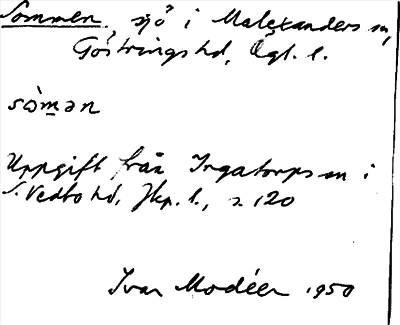 Sommen, sjö i Malexanders sn,
Göstrings hd, Ögl. l.
sòmən
Uppgift från Ingatorps sn i
S. Vedbo hd, Jkp. l., s. 120
Ivar Modéer 1950